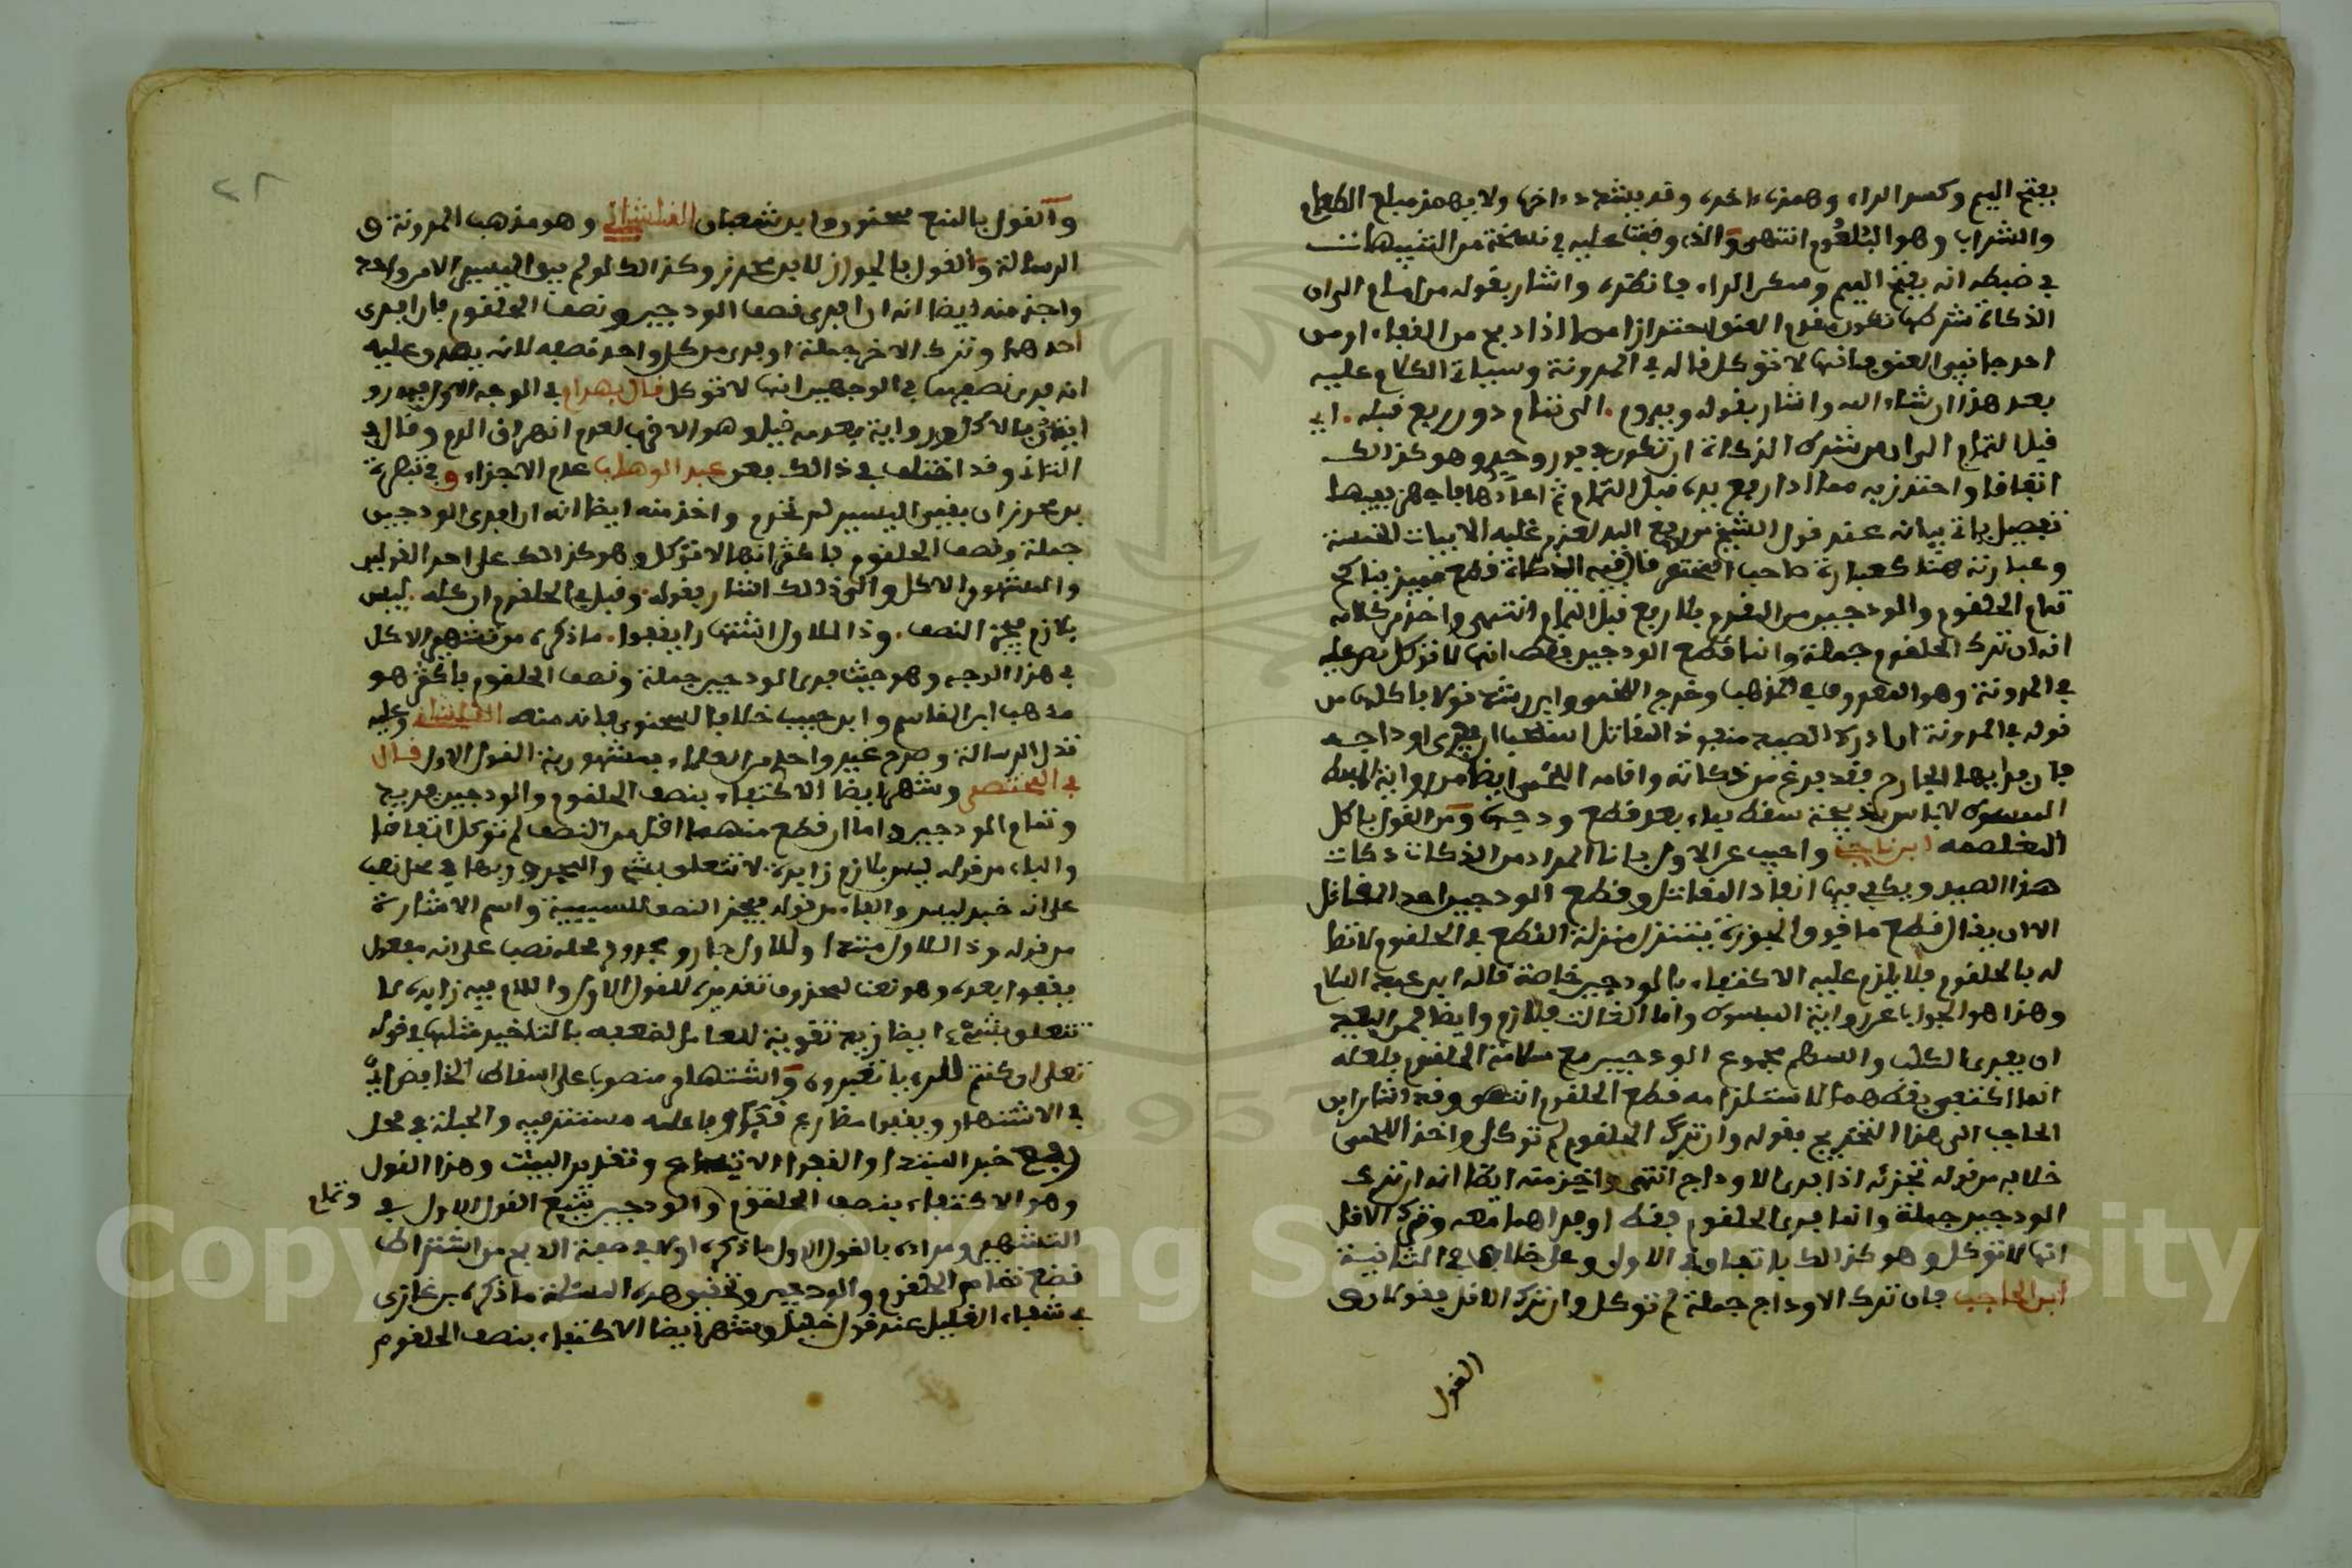 بفتح الميم وكسر الراء وهمزة اخره وقد يشدد اخره ولا يهمز مبلع الطعام
والشراب وهو البلعوم انتهى والذي وقفت عليه في نسخة من التنبيهات
في ضبطه انه بفتح الميم وسكون الراء فانظره واشار بقوله من امام الى ان
الذكاة شرطها تكون من مقدم العنق احترازا مما اذا ذبح من القفا او من
احد جانبي العنق فانها لا توكل قاله في المدونة وسياتي الكلام عليه
بعد هذا ان شاء الله واشار بقوله وبدوم الى تمام دون رفع قبله اي
قبل التمام الى ان من شرط الذكاة ان تكون في فور واحد وهو كذلك
اتفاقا واحترز به مما اذا رفع يده قبل التمام ثم اعادها فاجهز ففيها
تفصيل ياتي بيانه عند قول الشيخ من رفع اليد
وعبارته هنا كعبارة صاحب المختصر قال فيه الذكاة قطع مميز يناكح
تمام الحلقوم والودجين من المقدم بلا رفع قبل التمام انتهى واخذ من كلامه
انه ان ترك الحلقوم جملة وانما قطع الودجين فقط انها لا توكل نص عليه
في المدونة وهو المعروف في المذهب وخرج اللخمي وابن رشد قولا باكلها من
قوله في المدونة ان ادرك الصيد منفوذ المقاتل استحب ان يفري اوداجه
فان فراها الجارح فقد فرغ من ذكاته واقامه اللخمي ايضا من رواية
المبسوط لا باس بذبيحة سقط بماء بعد قطع ودجيه ومن القول باكل
المغلصمة ابن ناجي واجيب عن الاول بانا المراد من الذكاة ذكاة
هذا الصيد ويكفي فيها انفاذ المقاتل وقطع الودجين احد المقاتل
الا ان يقال قطع ما فوق الجوزة يتنزل منزلة القطع في الحلقوم لاتصا
له بالحلقوم فلا يلزم عليه الاكتفاء بالودجين خاصة قاله ابن عبد السلام
وهذا هو الجواب عن رواية المبسوط واما الثالث فلازم وايضا فمن البعيد
ان يفري الكلب والسهم مجموع الودجين مع سلامة الحلقوم فلعله
انما اكتفى بقطعهما لاستلزامه قطع الحلقوم انتهى وقد اشار ابن
الحاجب الى هذا التخريج بقوله وان ترك الحلقوم لم توكل واخذ اللخمي
خلافه من قوله تجزئه اذا فرى الاوداج انتهى واخذ منه ايضا انه ان ترك
الودجين جملة وانما فرى الحلقوم فقط او فراهما معه وترك الاقل
انها لا توكل وهو كذلك باتفاق في الاولى وعلى خلاف في الثانية
ابن الحاجب فان ترك الاوداج جملة لم توكل وان ترك الاقل فقولان
القول
والقول بالمنع سحنون وابن شعبان القلشاني وهو مذهب المدونة و
الرسالة والقول بالجواز لابن محرز وكذا لو لم يبق اليسير الامر واحد
واخذ منه ايضا انه ان فرى نصف الودجين ونصف الحلقوم بان فرى
احدهما وترك الاخر جملة او فرى من كل واحد نصفه لانه يصدق عليه
انه فرى نصفهما في الوجهين انها لا توكل قال بهرام في الوجه الاول
بالاكل ورواية بعدمه قيل وهو الاقرب لعدم انهراق الدم وقال في
الثاني وقد اختلف في ذلك فعن عبد الوهاب عدم الاجزاء وفي تبصرة
بن محرز ان بقي اليسير لم تحرم واخذ منه ايضا انه ان فرى الودجين
جملة ونصف الحلقوم فاكثر انها لا توكل وهو كذلك على احد القولين
والمشهور الاكل والى ذلك اشار بقوله وقيل في الحلقوم ان كله ليس
بلازم فيجزئ النصف وذا للاول اشتهارا يقفوا ما ذكره من تشهير الاكل
في هذا الوجه وهو حيث فرى الودجين جملة ونصف الحلقوم فاكثر هو
مذهب ابن القاسم وابن حبيب خلافا لسحنون فانه منعه القلشاني وعليه
تدل الرسالة وصرح غير واحد من العلماء بمشهورية القول الاول قال
في المختصر وشهر ايضا الاكتفاء بنصف الحلقوم والودجين يريد
وتمام الودجين واما ان قطع منهما اقل من النصف لم توكل اتفاقا
والباء من قوله ليس بلازم زايدة لا تتعلق بشيء والمجرور بها في محل نصب
على انه خبر ليس والفاء من قوله فيجزئ النصف للسببية واسم الاشارة
من قوله وذا للاول مبتدا وللاول جار ومجرور محله نصب على انه مفعول
يقفوا بعده وهو نعت لمحذوف تقديره للقول الاول واللام فيه زايدة لا
تتعلق بشيء ايضا زيد تقوية للعامل لضعفه بالتاخير مثلها في قوله
تعلى ان كنتم للرءيا تعبرون واشتهار منصوب على اسقاط الخافض اي
في الاشتهار ويقفوا مضارع قفا وفاعله مستتر فيه والجملة في محل
رفع خبر المبتدا والقفو الاتباع وتقدير البيت وهذا القول
وهو الاكتفاء بنصف الحلقوم والودجين يتبع القول الاول في
وتمام
التشهير ومراده بالقول الاول ما ذكره اولا في صفة الذبح من اشتراط
قطع تمام الحلقوم والودجين وتحقيق هذه المسئلة ما ذكره بن غازي
في شفاء الغليل عند قول خليل وشهر ايضا الاكتفاء بنصف الحلقوم